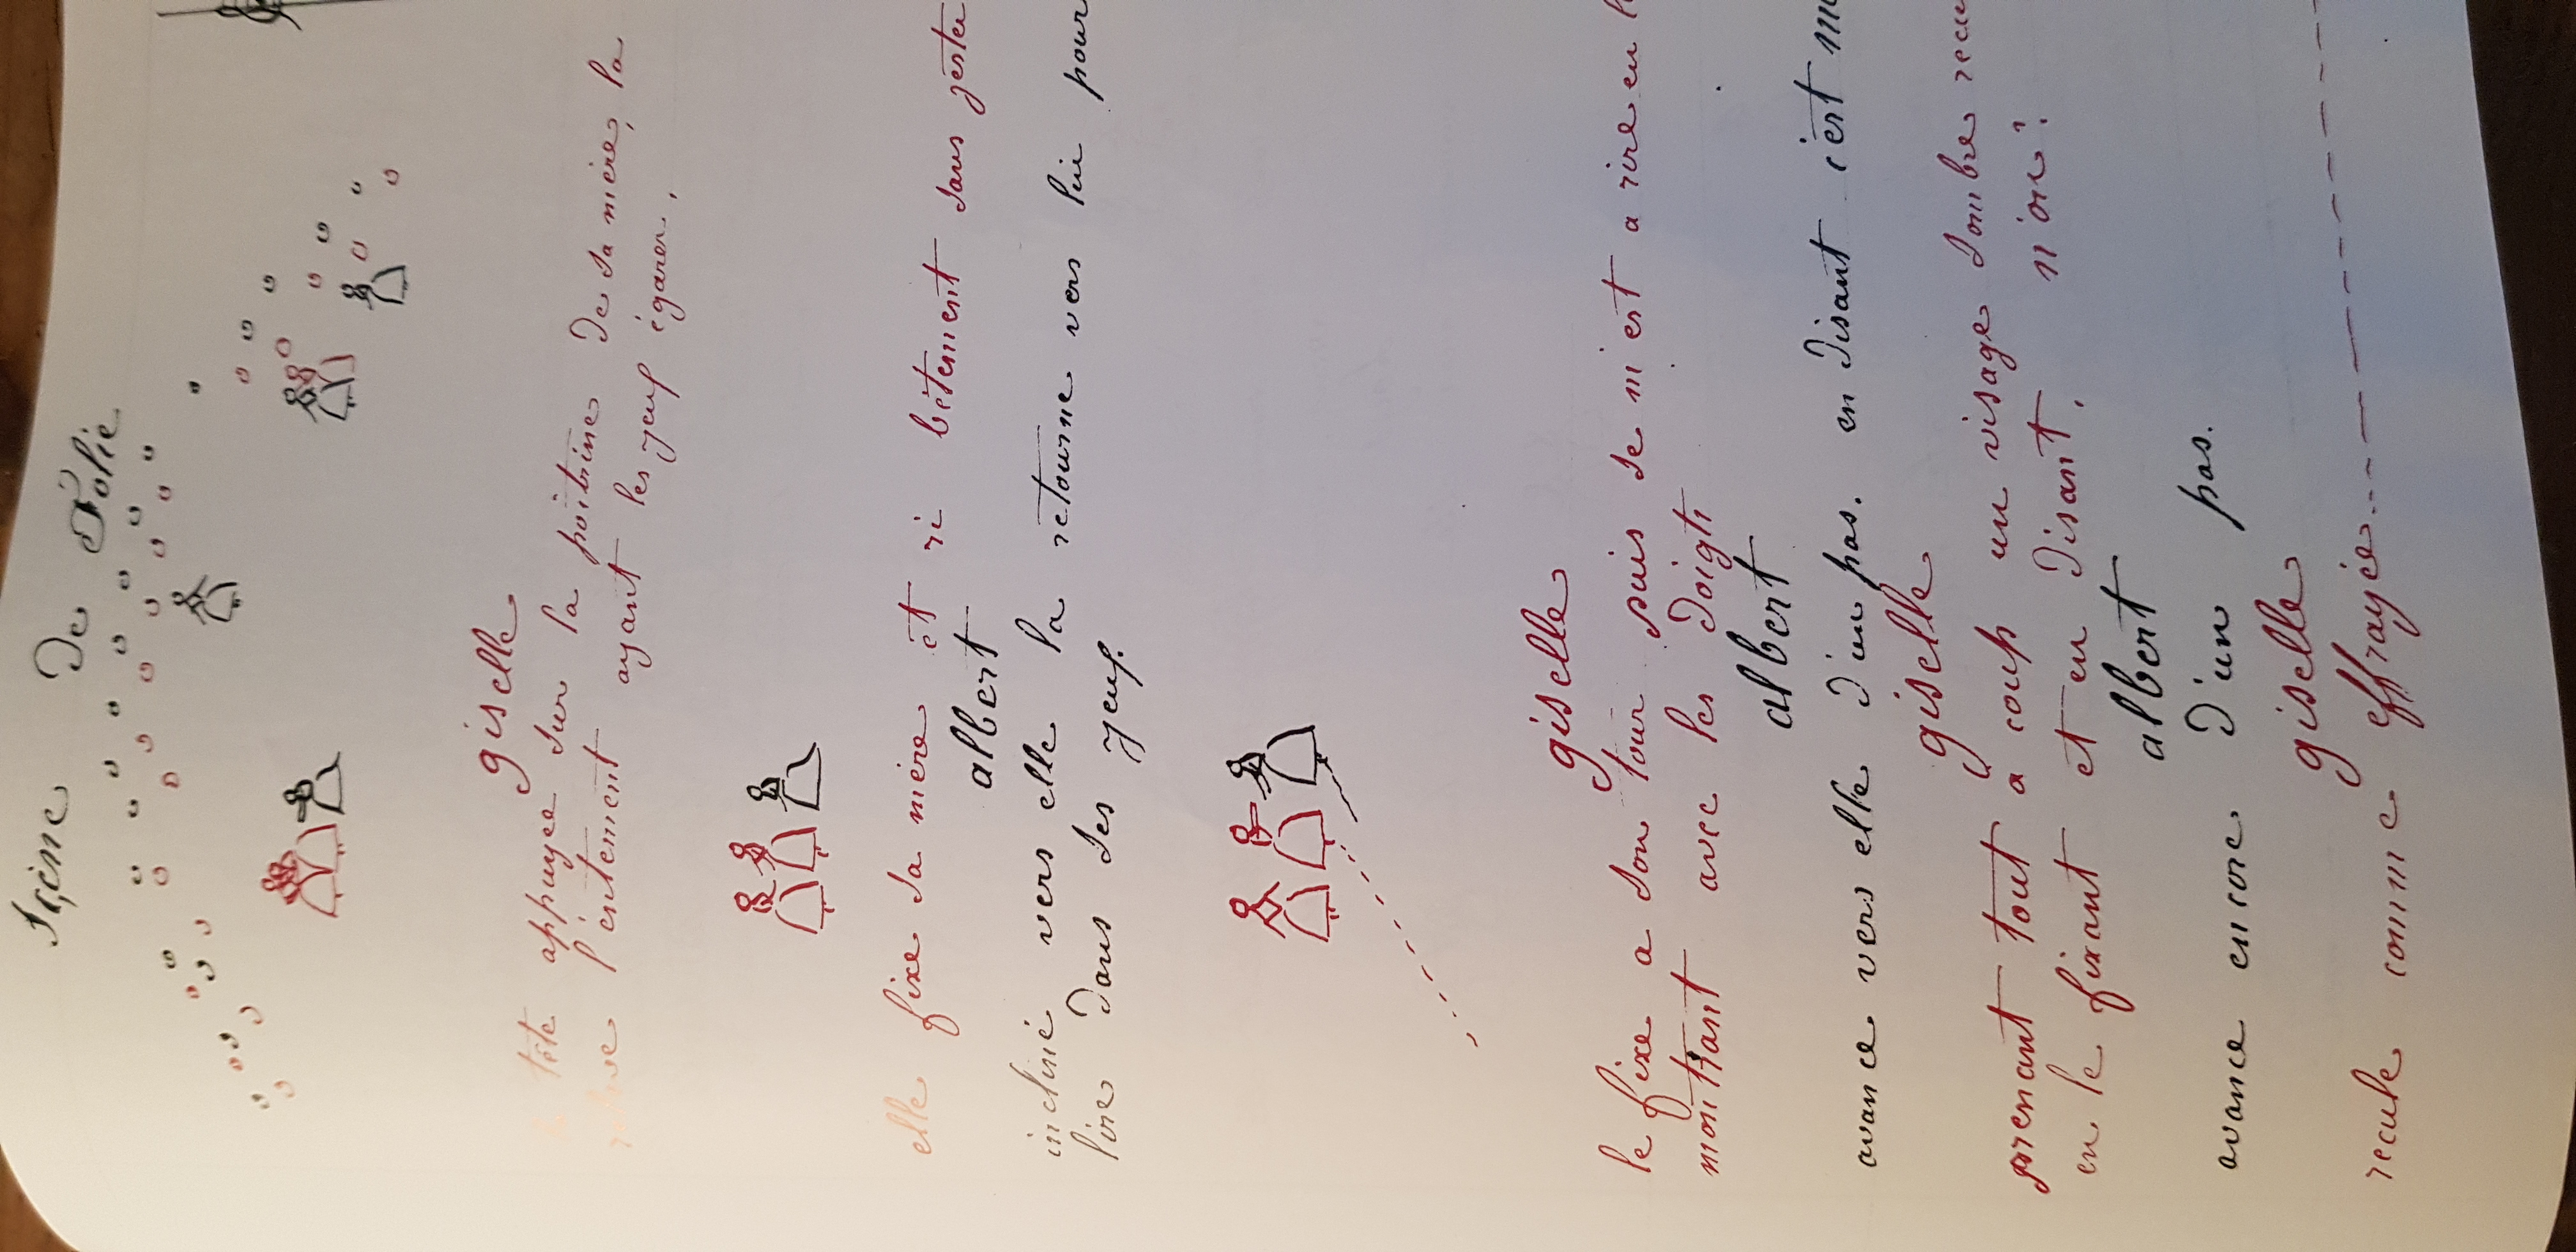 Scène De Folie
giselle
tête appuyée sur la poitrine De sa mère, la
relève l'entement ayant les yeux égaren,
elle fixe sa mère et ri bêtement sans geste
albert
incliné vers elle la retourne vers lui pour
lire dans ses yeux.
giselle
le fixe a son tour puis se m'est a rire en l
montrant avec les Doigts
albert
avance vers elle D'un pas. en Disant c'est m
giselle
prenant tout a coup un visage sombre recu
en le fixant et en Disant, n'on?
albert
avance encore D'un pas.
giselle
recule comme effrayée